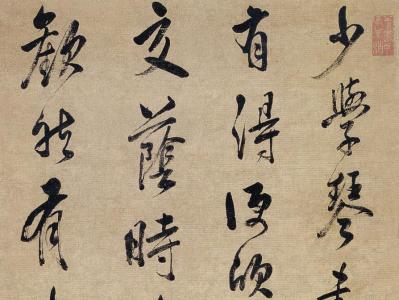 少學琴書
有得便欣
交蔭時
歡然有